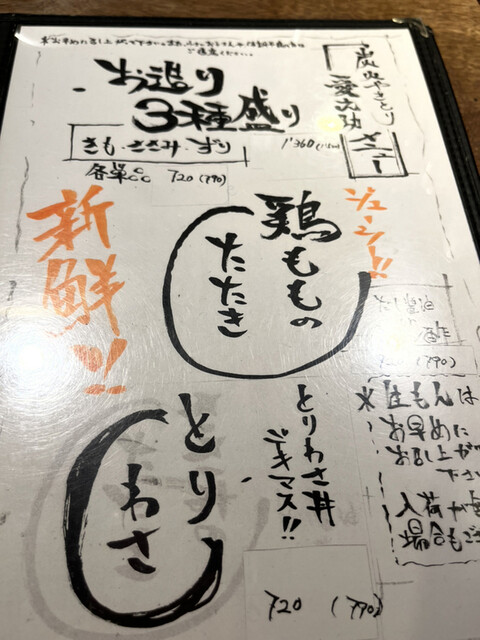 お造り
3種盛り
きも・ささみ・ずり
各単品 720 (790)
炭火やきとり
メニュー
新鮮!!
ジューシー!!
鶏ももの
たたき
720 (790)
とりわさ
とりわさ丼
デキマス!!
720 (790)
※生もんは
お早めに
お召し上がり
下さい
入荷が
場合もご